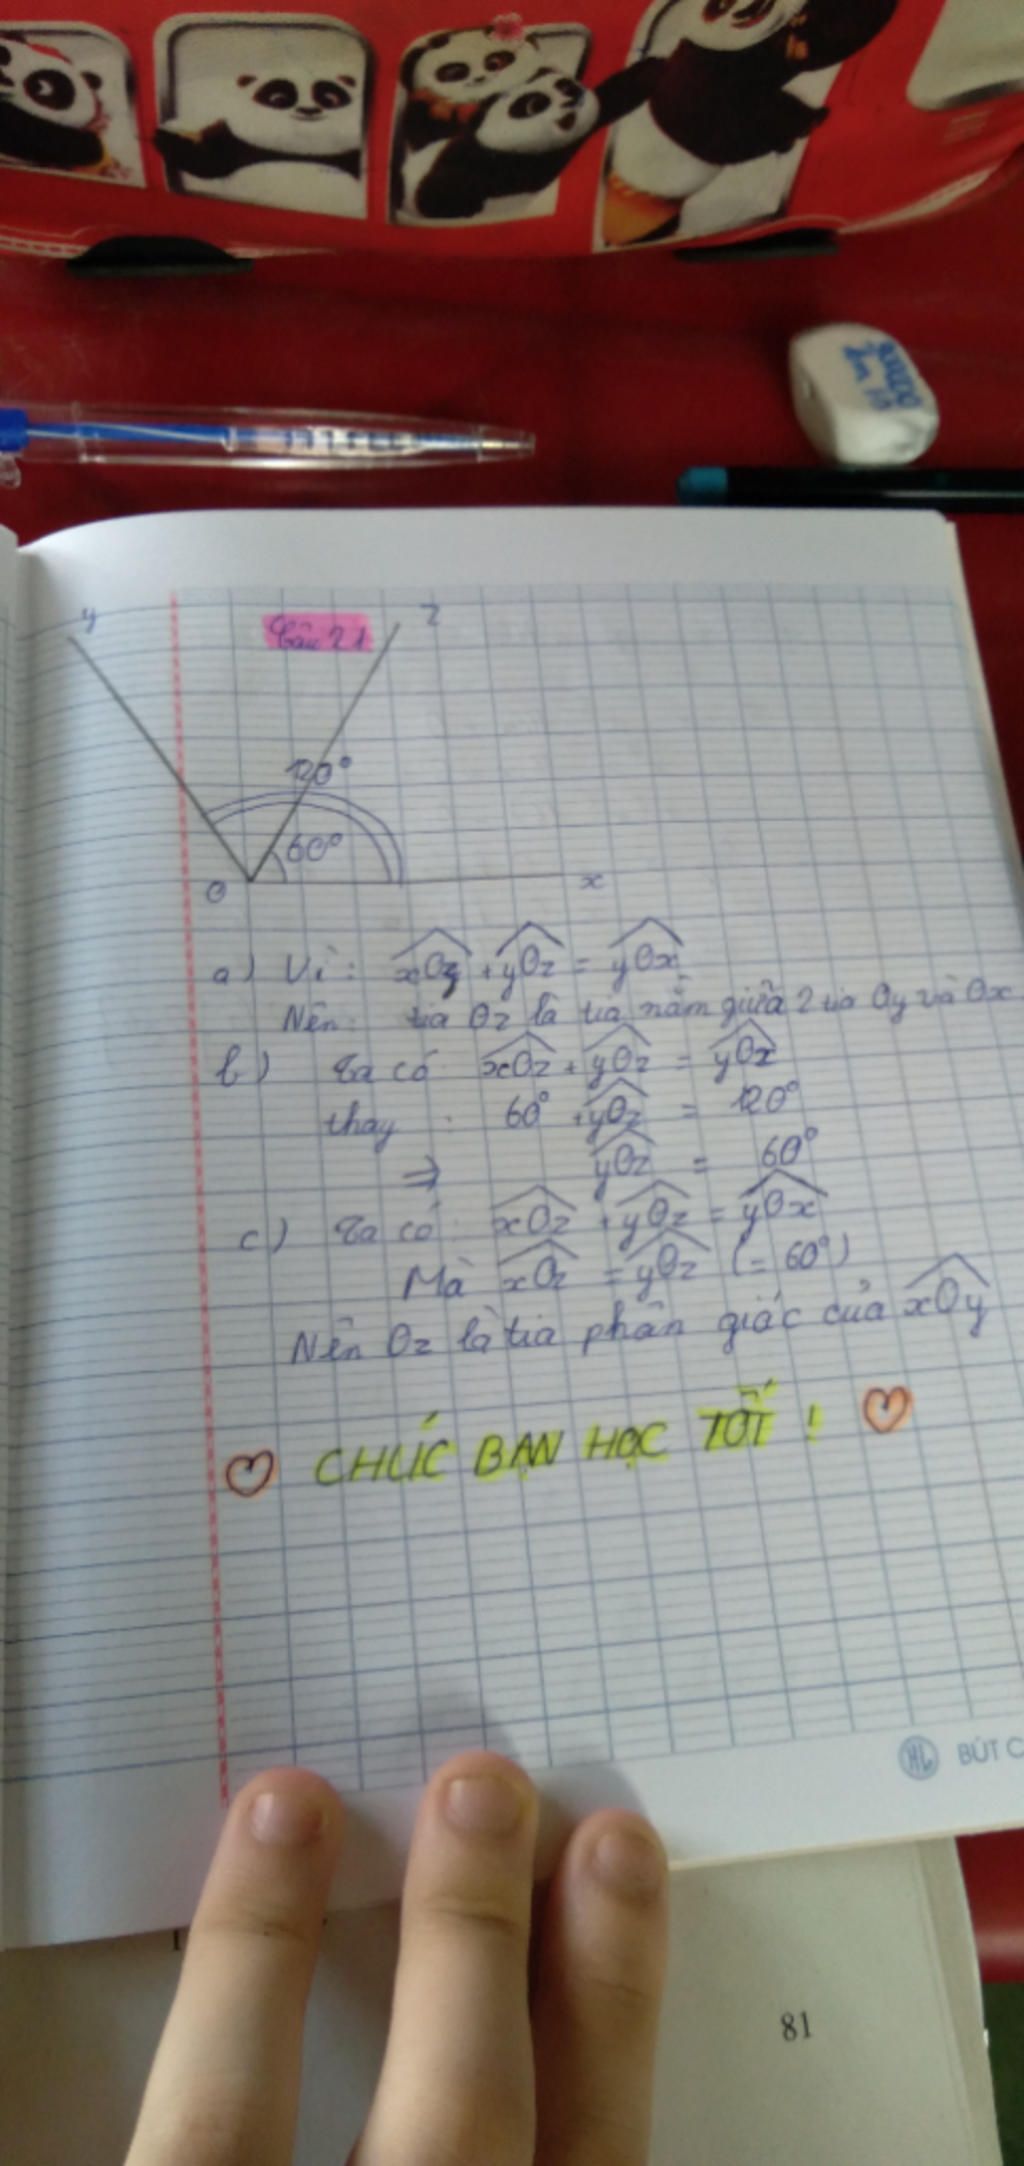 y
Câu 21
z
120°
60°
O
x
a) Vì: xOz + yOz = yOx
Nên: tia Oz là tia nằm giữa 2 tia Oy và Ox
b) Ta có: xOz + yOz = yOx
thay : 60° + yOz = 120°
⇒ yOz = 60°
c) Ta có: xOz + yOz = yOx
Mà xOz = yOz (= 60°)
Nên Oz là tia phân giác của xOy
♡ CHÚC BẠN HỌC TỐT ! ♡
HL BÚT C
81